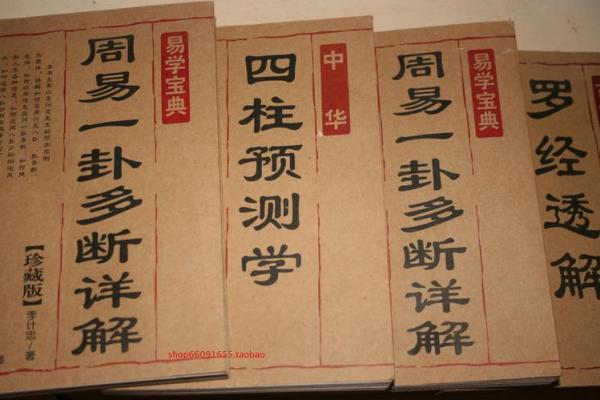 易学宝典
周易一卦多断详解
【珍藏版】
李计忠/著
中华
四柱预测学
易学宝典
周易一卦多断详解
罗经透解
shop66091655.taobao